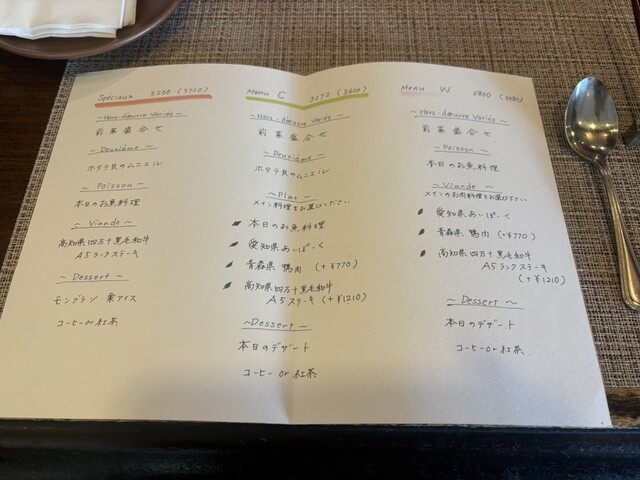 Speciaux 5200 (5720)
~Hors-dœuvre Variés~
前菜盛合せ
~Deuxiéme~
ホタテ貝のムニエル
~Poisson~
本日のお魚料理
~Viande~
高知県四万十黒毛和牛
A5ランクステーキ
~Dessert~
モンブラン 栗アイス
コーヒー or 紅茶
Menu C 3272 (3600)
~Hors-dœuvre Variés~
前菜盛合せ
~Deuxiéme~
ホタテ貝のムニエル
~Plat~
メイン料理をお選びください
本日のお魚料理
愛知県あいぽーく
青森県 鴨肉 (+¥770)
高知県四万十黒毛和牛
A5ステーキ (+¥1210)
~Dessert~
本日のデザート
コーヒー or 紅茶
Menu W 2800 (3080)
~Hors-dœuvre Variés~
前菜盛合せ
~Poisson~
本日のお魚料理
~Viande~
メインのお肉料理をお選び下さい
愛知県あいぽーく
青森県 鴨肉 (+¥770)
高知県四万十黒毛和牛
A5ランクステーキ
(+¥1210)
~Dessert~
本日のデザート
コーヒー or 紅茶